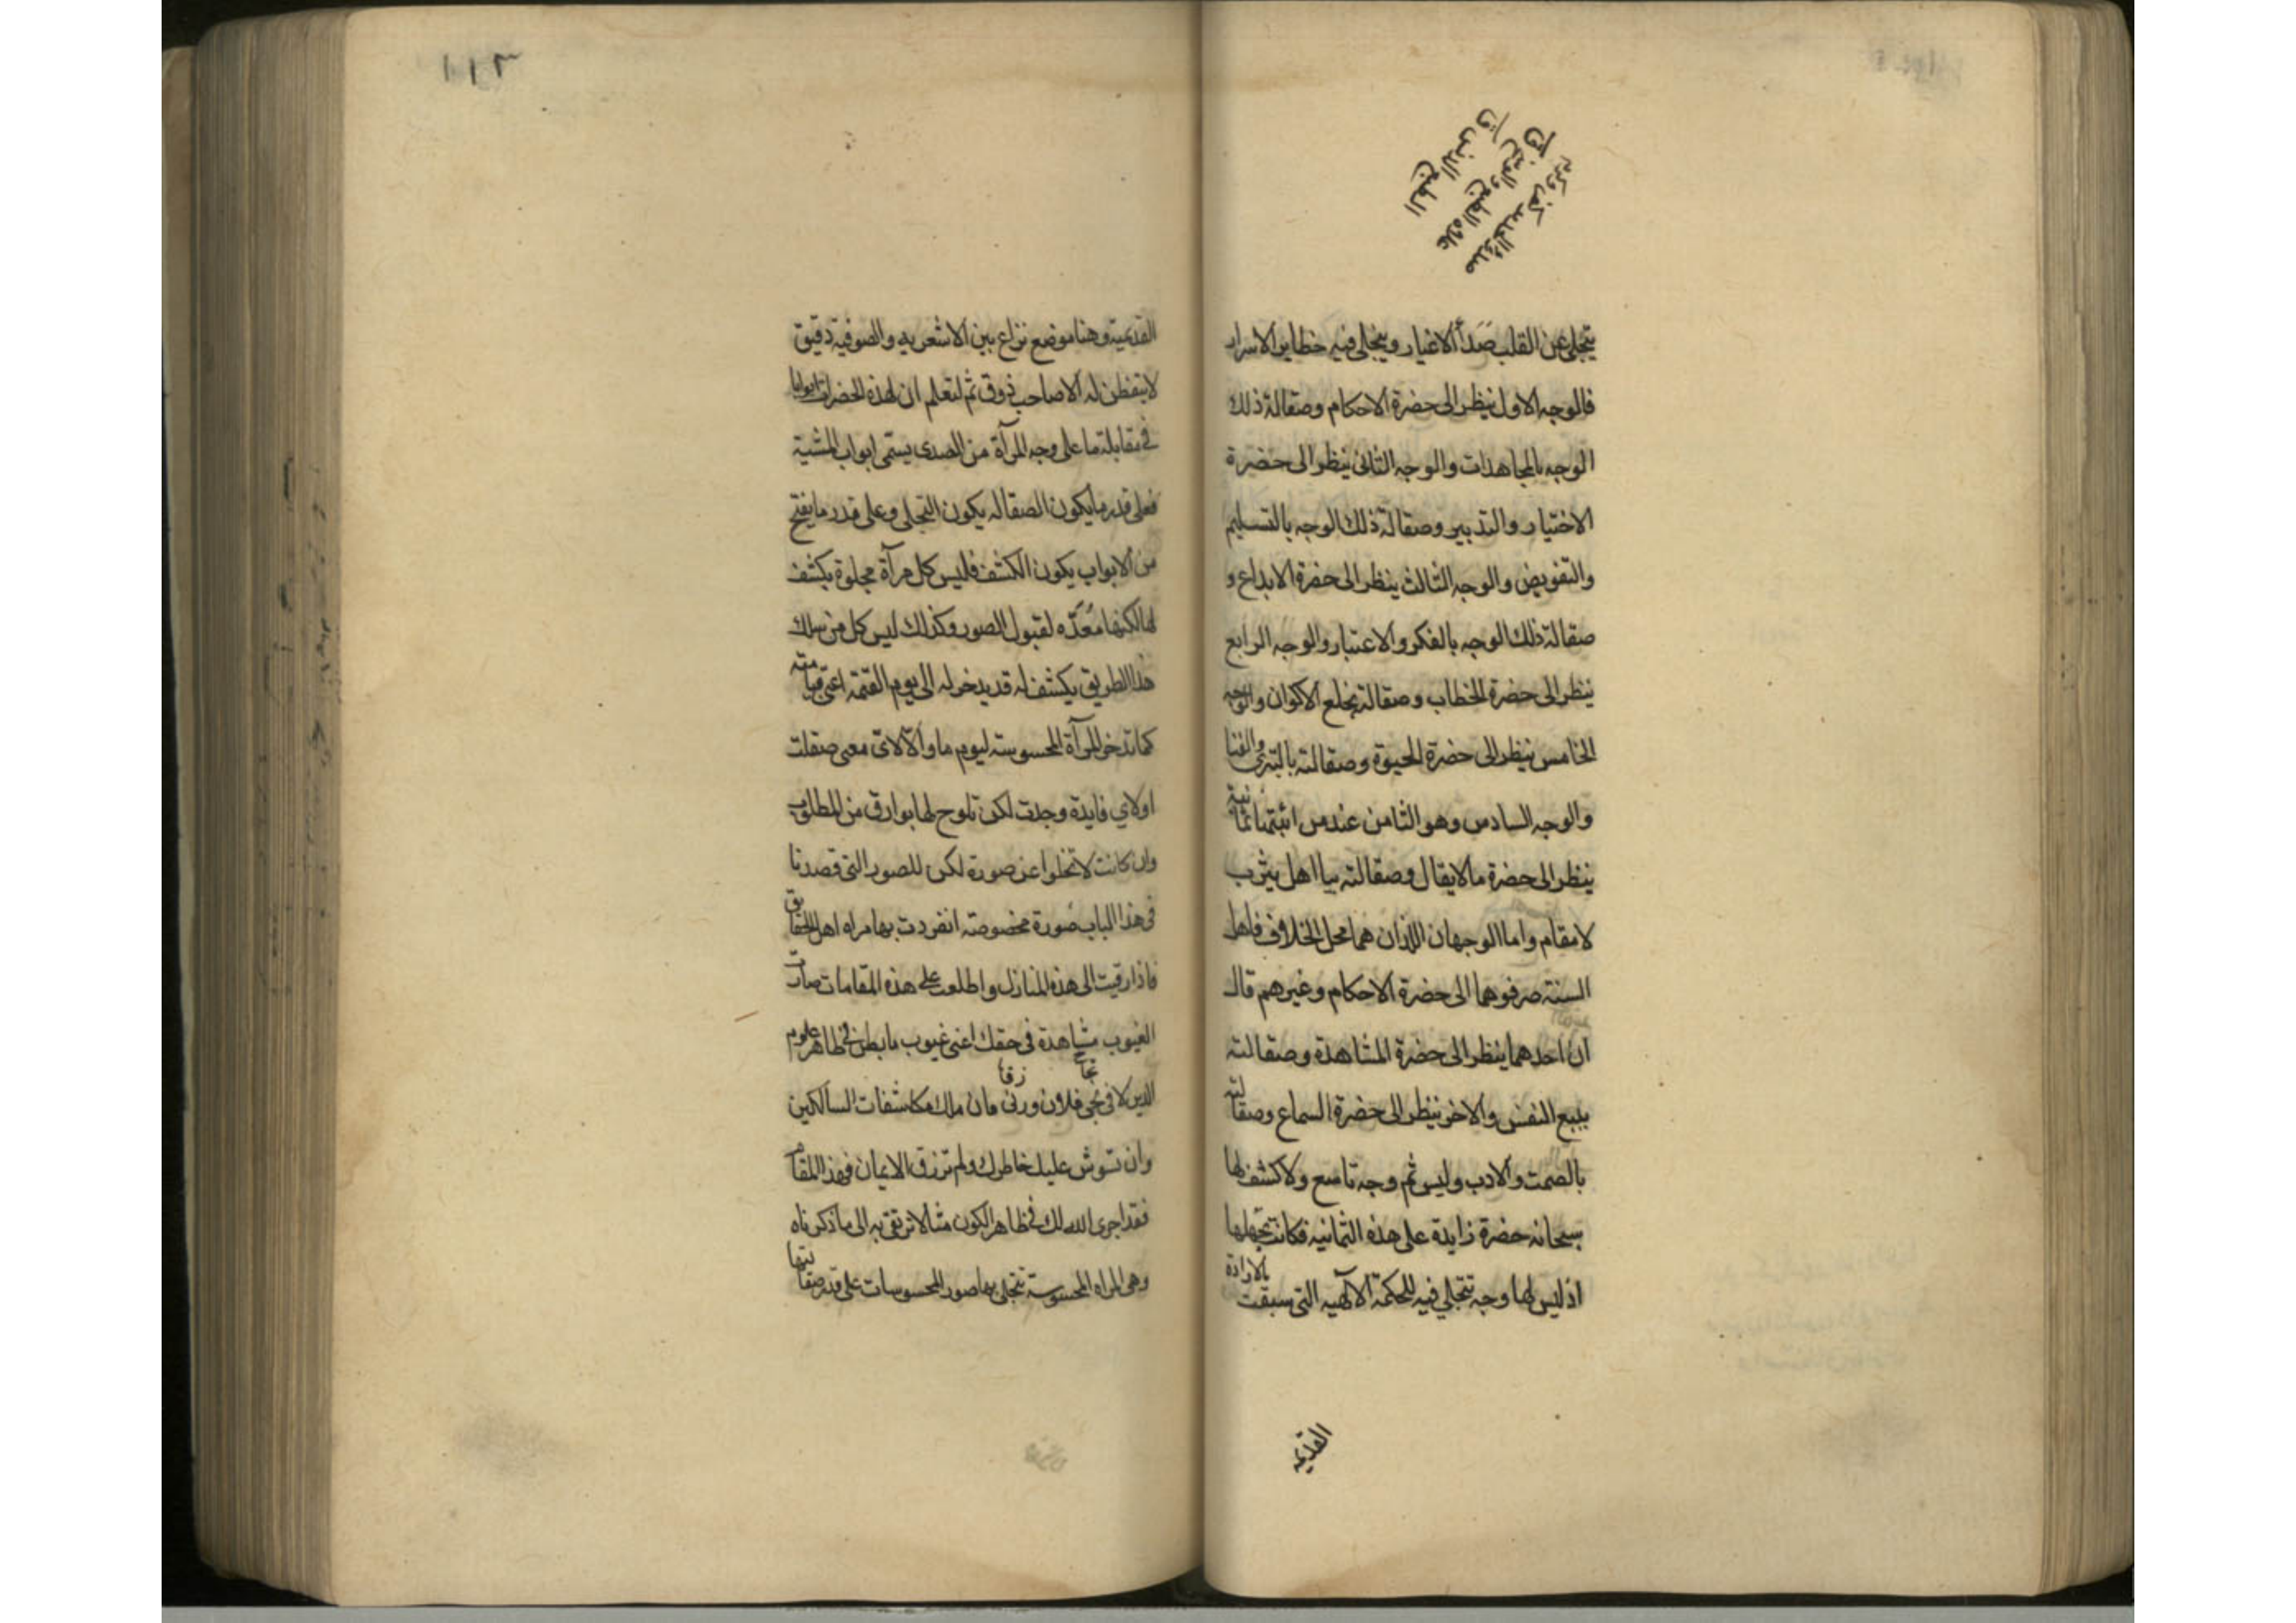 ينجلي عن القلب صَدَأ الاغيار ويتجلى فيه خطاير الاسرار
فالوجه الاول ينظر الى حضرة الاحكام وصقالة ذلك
الوجه بالمجاهدات والوجه الثانى ينظر الى حضرة
الاختيار والتدبير وصقالة ذلك الوجه بالتسليم
والتفويض والوجه الثالث ينظر الى حضرة الابداع و
صقالة ذلك الوجه بالفكر والاعتبار والوجه الرابع
ينظر الى حضرة الخطاب وصقالته بخلع الاكوان والوجه
الخامس ينظر الى حضرة الحيوة وصقالته بالتبرى والفنا
والوجه السادس وهو الثامن عند من اثبتها ثمانية
ينظر الى حضرة ما لا يقال وصقالته بيا اهل يثرب
لا مقام واما الوجهان اللذان هما محل الخلاف فاهل
السنة صرفوهما الى حضرة الاحكام وغيرهم قال
ان احدهما ينظر الى حضرة المشاهدة وصقالته
ببيع النفس والاخر ينظر الى حضرة السماع وصقالته
بالصمت والادب وليس ثم وجه تاسع ولا كشف لها
سبحانه حضرة زايدة على هذه الثمانيه فكانت تجهلها
اذ ليس لها وجه تتجلي فيه للحكمة الآلهيه التى سبقت بالارادة
القديمة
القديمية وهنا موضع نزاع بين الاشعريه والصوفية دقيق
لا يتفطن له الا صاحب ذوق ثم لتعلم ان لهذه الحضرات ابوابا
في مقابلة ما على وجه المرآة من الصدى يسمى ابواب المشية
فعلى قدر ما يكون الصقاله يكون التجلى وعلى قدر ما يفتح
من الابواب يكون الكشف فليس كل مرآة مجلوة يكشف
لها لكنها مُعَدّه لقبول الصور وكذلك ليس كل من سلك
هذا الطريق يكشف له قد يدخر له الى يوم القيمة اعنى قيامته
كما تدخر المرآة المحسوسة ليوم ما والا لاىّ معى صقلت
او لاي فايدة وجدت لكن تلوح لها بوارق من المطلوب
وان كانت لا تخلوا عن صورة لكن للصور التى قصدنا
فى هذا الباب صُورة مخصوصة انفردت بها مراه اهل الحقايق
فاذا رقيت الى هذه المنازل واطلعت على هذه المقامات صارت
الغيوب مشاهدة فى حقك اعنى غيوب ما بطن فى ظاهر علوم
الدين لا فى نجى فلان ورنى مان ملك مكاشفات السالكين
وان تشوش عليك خاطرك ولم ترزق الايمان فى هذا المقام
فقد اجرى الله لك فى ظاهر الكون مثالا ترتقى به الى ما ذكرناه
وهى المراه المحسوسة تتجلى بها صور المحسوسات على قدر صقالتها